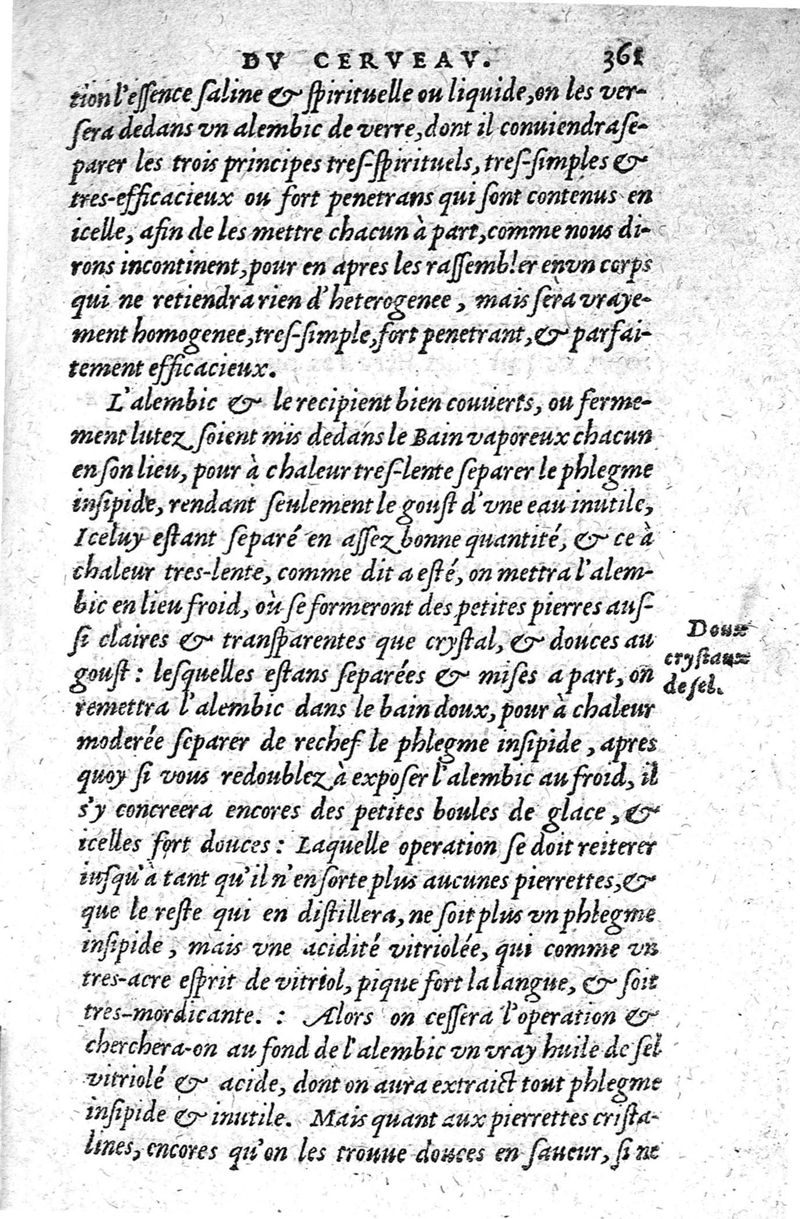 DV CERVEAV. 361
tion l'eſſence ſaline & ſpirituelle ou liquide, on les ver-
ſera dedans vn alembic de verre, dont il conuiendra ſe-
parer les trois principes treſ-ſpirituels, treſ-ſimples &
tres-efficacieux ou fort penetrans qui ſont contenus en
icelle, afin de les mettre chacun à part, comme nous di-
rons incontinent, pour en apres les raſſembler en vn corps
qui ne retiendra rien d'heterogenee, mais ſera vraye-
ment homogenee, treſ-ſimple, fort penetrant, & parfai-
tement efficacieux.
L'alembic & le recipient bien couuerts, ou ferme-
ment lutez ſoient mis dedans le Bain vaporeux chacun
en ſon lieu, pour à chaleur treſ-lente ſeparer le phlegme
inſipide, rendant ſeulement le gouſt d'vne eau inutile,
Iceluy eſtant ſeparé en aſſez bonne quantité, & ce à
chaleur tres-lente, comme dit a eſté, on mettra l'alem-
bic en lieu froid, où ſe formeront des petites pierres auſ-
ſi claires & tranſparentes que cryſtal, & douces au
gouſt : leſquelles eſtans ſeparées & miſes a part, on
remettra l'alembic dans le bain doux, pour à chaleur
moderée ſeparer de rechef le phlegme inſipide, apres
quoy ſi vous redoublez à expoſer l'alembic au froid, il
s'y concreera encores des petites boules de glace, &
icelles fort douces : Laquelle operation ſe doit reiterer
iuſqu'à tant qu'il n'en ſorte plus aucunes pierrettes, &
que le reſte qui en diſtillera, ne ſoit plus vn phlegme
inſipide, mais vne acidité vitriolée, qui comme vn
tres-acre eſprit de vitriol, pique fort la langue, & ſoit
tres-mordicante. : Alors on ceſſera l'operation &
cherchera-on au fond de l'alembic vn vray huile de ſel
vitriolé & acide, dont on aura extraict tout phlegme
inſipide & inutile. Mais quant aux pierrettes criſta-
lines, encores qu'on les trouue douces en ſaueur, ſi ne
Doux
cryſtaux
de ſel.